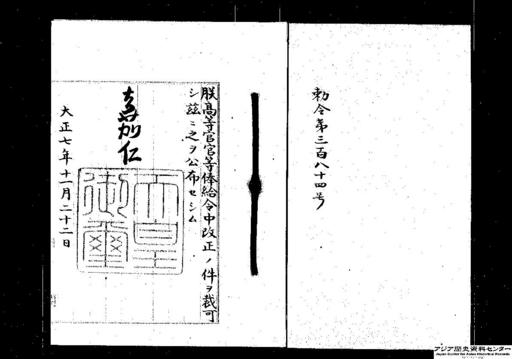 勅令第三百八十四号
朕高等官官等俸給令中改正ノ件ヲ裁可
シ茲ニ之ヲ公布セシム
嘉仁
天皇御璽
大正七年十一月二十二日
アジア歴史資料センター
Japan Center for Asian Historical Records